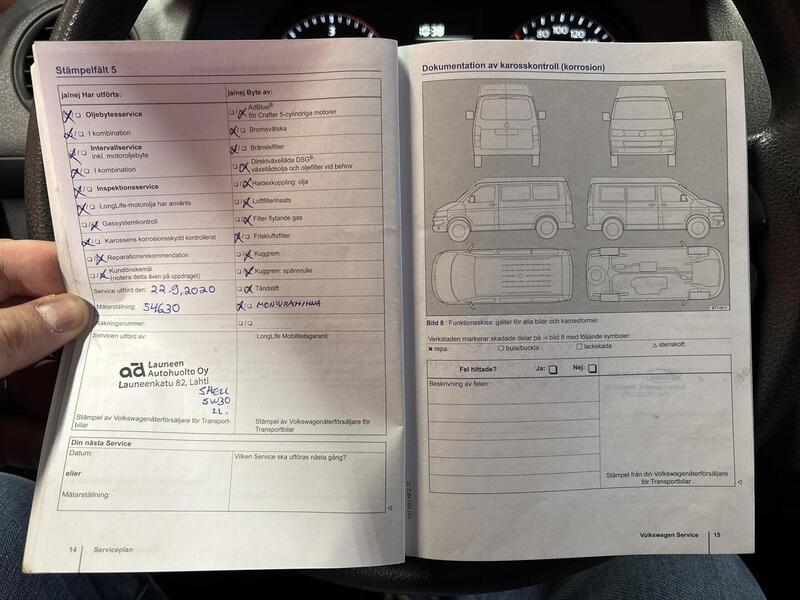 3
10:30
80 100 120 140
Stämpelfält 5
ja/nej Har utförts:
☒/☐ Oljebytesservice
☒/☐ I kombination
☒/☐ Intervallservice
inkl. motoroljebyte
☒/☐ I kombination
☒/☐ Inspektionsservice
☒/☐ LongLife-motorolja har använts
☐/☒ Gassystemkontroll
☒/☐ Karossens korrosionsskydd kontrollerat
☐/☒ Reparationsrekommendation
☐/☒ Kundönskemål
(notera detta även på uppdraget)
Service utförd den: 22.9.2020
Mätarställning: 54630
Räkningsnummer:
Servicen utförd av:
ad Launeen
Autohuolto Oy
Launeenkatu 82, Lahti
SHELL
5W30
LL.
Stämpel av Volkswagenåterförsäljare för Transport-
bilar
ja/nej Byte av:
☐/☒ AdBlue®
för Crafter 5-cylindriga motorer
☒/☐ Bromsvätska
☒/☐ Bränslefilter
☐/☒ Direktväxellåda DSG®:
växellådsolja och oljefilter vid behov
☐/☒ Haldexkoppling: olja
☐/☒ Luftfilterinsats
☐/☒ Filter flytande gas
☒/☐ Friskluftsfilter
☐/☒ Kuggrem
☐/☒ Kuggrem: spännrulle
☐/☒ Tändstift
☒/☐ MONIURAHIHNA
☐/☐
LongLife Mobilitetsgaranti:
Stämpel av Volkswagenåterförsäljare för
Transportbilar
Din nästa Service
Datum:
eller
Mätarställning:
Vilken Service ska utföras nästa gång?
14 Serviceplan
Dokumentation av karosskontroll (korrosion)
Bild 8 Funktionsskiss: gäller för alla bilar och karossformer.
Verkstaden markerar skadade delar på ⇒ bild 8 med följande symboler:
× repa ○ bula/buckla □ lackskada △ stenskott
Fel hittade? Ja: ☐ Nej: ☐
Beskrivning av felen:
Stämpel från din Volkswagenåterförsäljare
för Transportbilar
Volkswagen Service 15